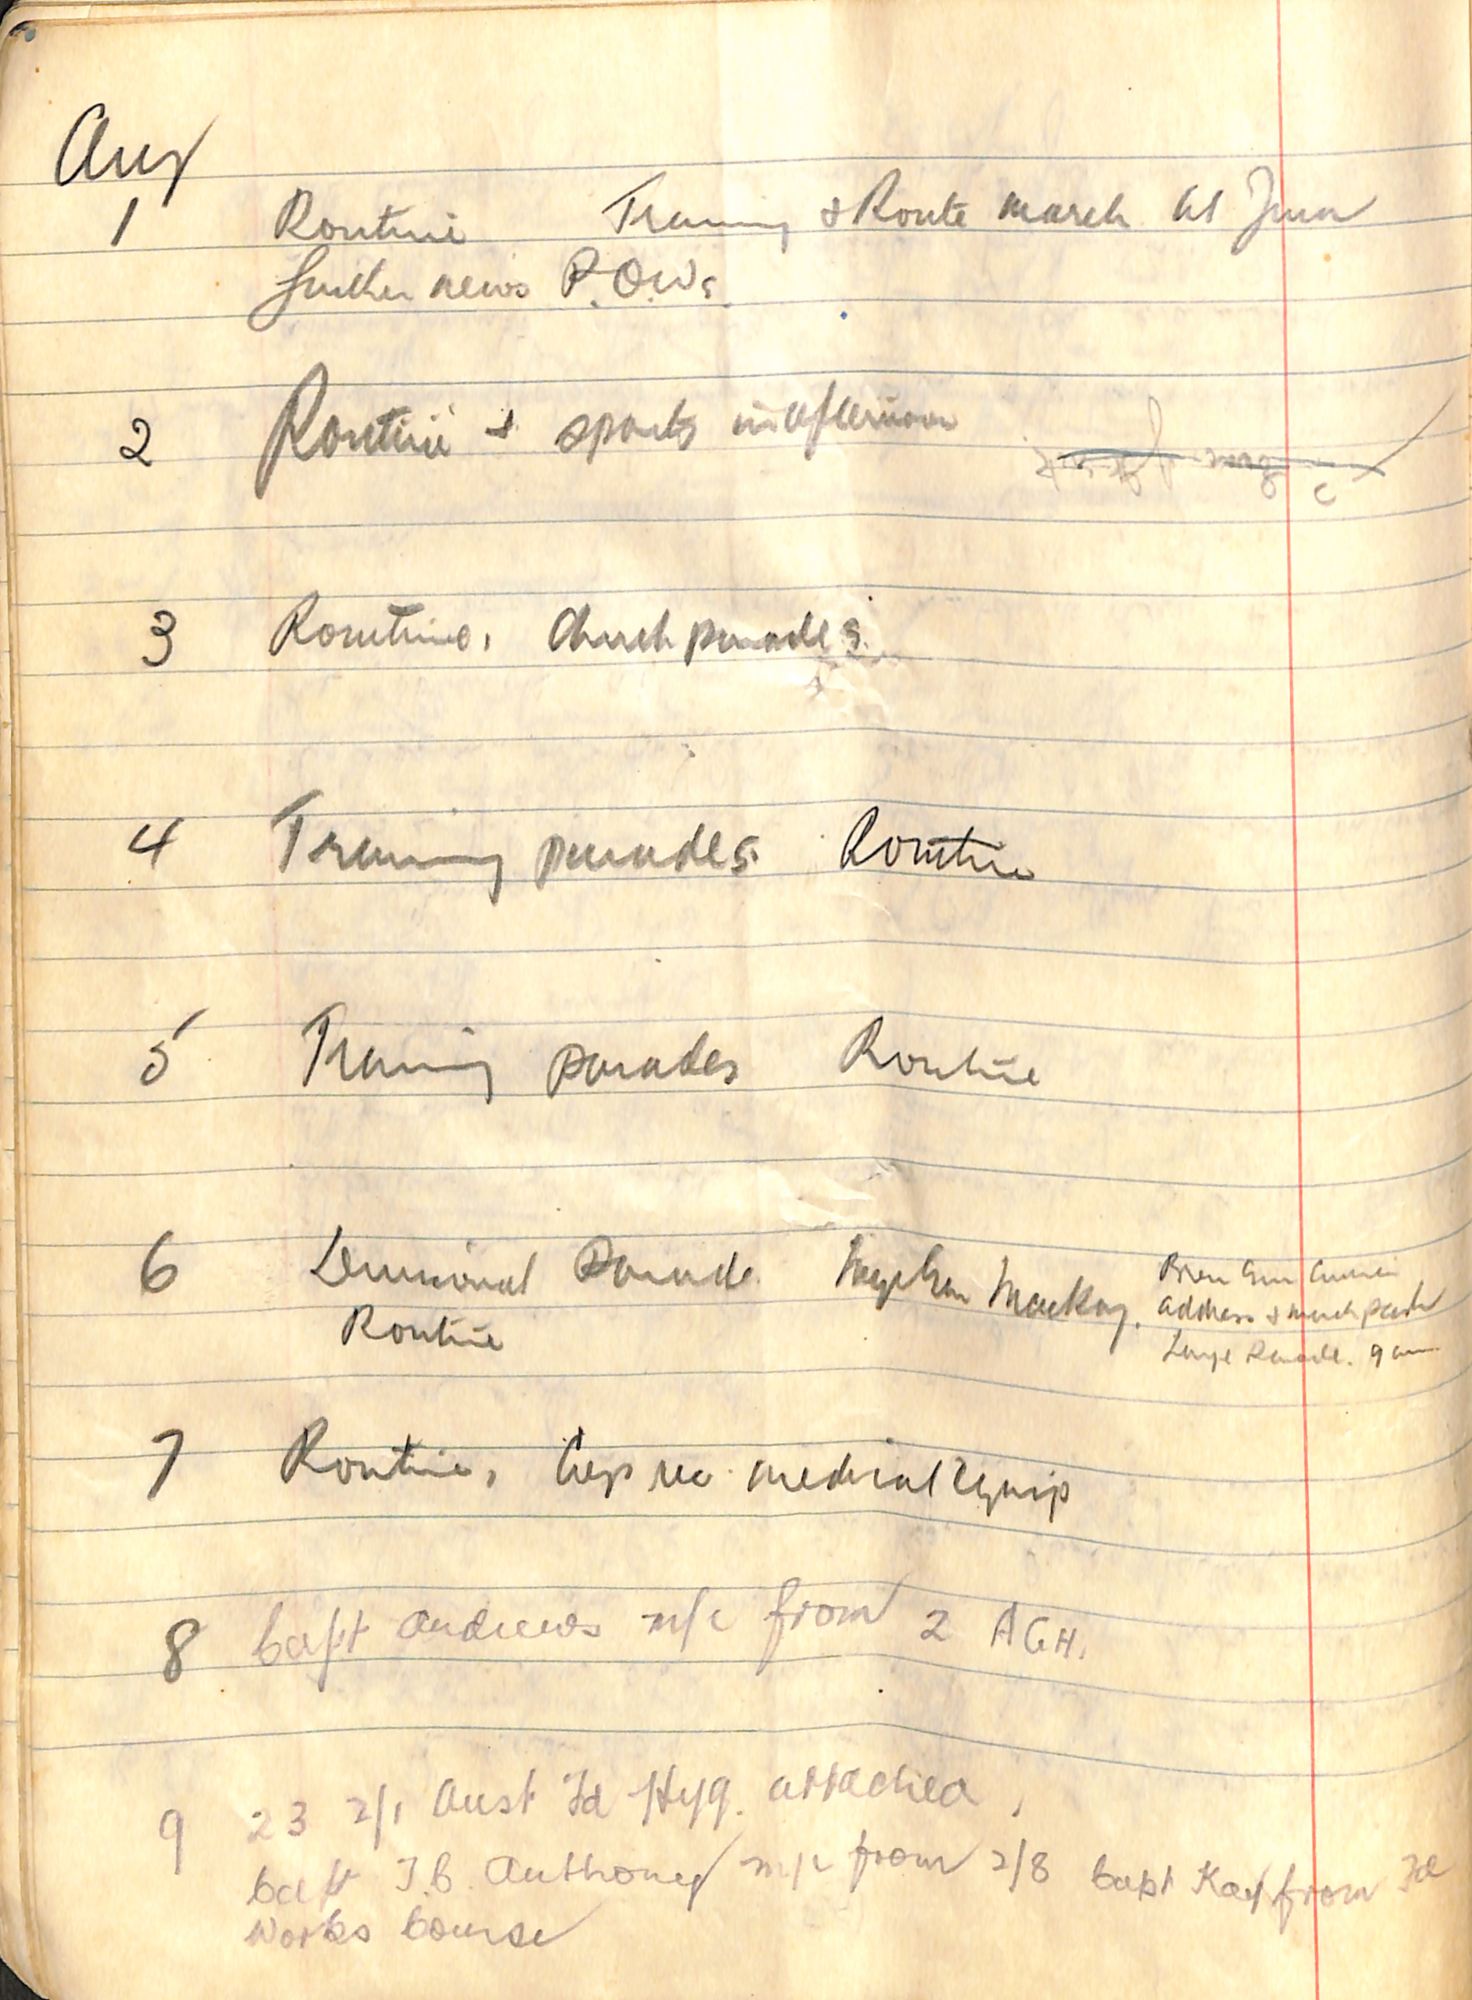 Aug
1 Routine Training & Route march at
further news P.O.Ws.
2 Routine & sports in afternoon
3 Routine, Church parades.
4 Training parades. Routine
5 Training parades Routine
6 Divisional Parade Maj Gen Mackay.
address & march past
Large Parade. 9 am
Routine
7 Routine, medical Equip
8 Capt Andrews m/c from 2 AGH.
9 23 2/1 Aust Fd Hyg. attached,
Capt J.B. Anthony m/c from 2/8 Capt Kay from Fd
Works Course